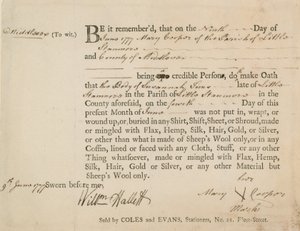 Middlesex (To wit.)
BE it remember'd, that on the Ninth Day of
June 1777 Mary Cooper of the Parish of Little
Stanmore in the
County of Middlesex
being two credible Persons, do make Oath
that the Body of Susannah late of Little
Stanmore in the Parish of Little Stanmore in the
County aforesaid, on the Day of this
present Month of June was not put in, wrapt, or
wound up, or buried in any Shirt, Shift, Sheet, or Shroud, made
or mingled with Flax, Hemp, Silk, Hair, Gold, or Silver,
or other than what is made of Sheep's Wool only, or in any
Coffin, lined or faced with any Cloth, Stuff, or any other
Thing whatsoever, made or mingled with Flax, Hemp,
Silk, Hair, Gold or Silver, or any other Material but
Sheep's Wool only.
9th June 1777 Sworn before me,
her
Mary X Cooper
Mark
Willm Hallett
Sold by COLES and EVANS, Stationers, No. 21. Fleet-Street.